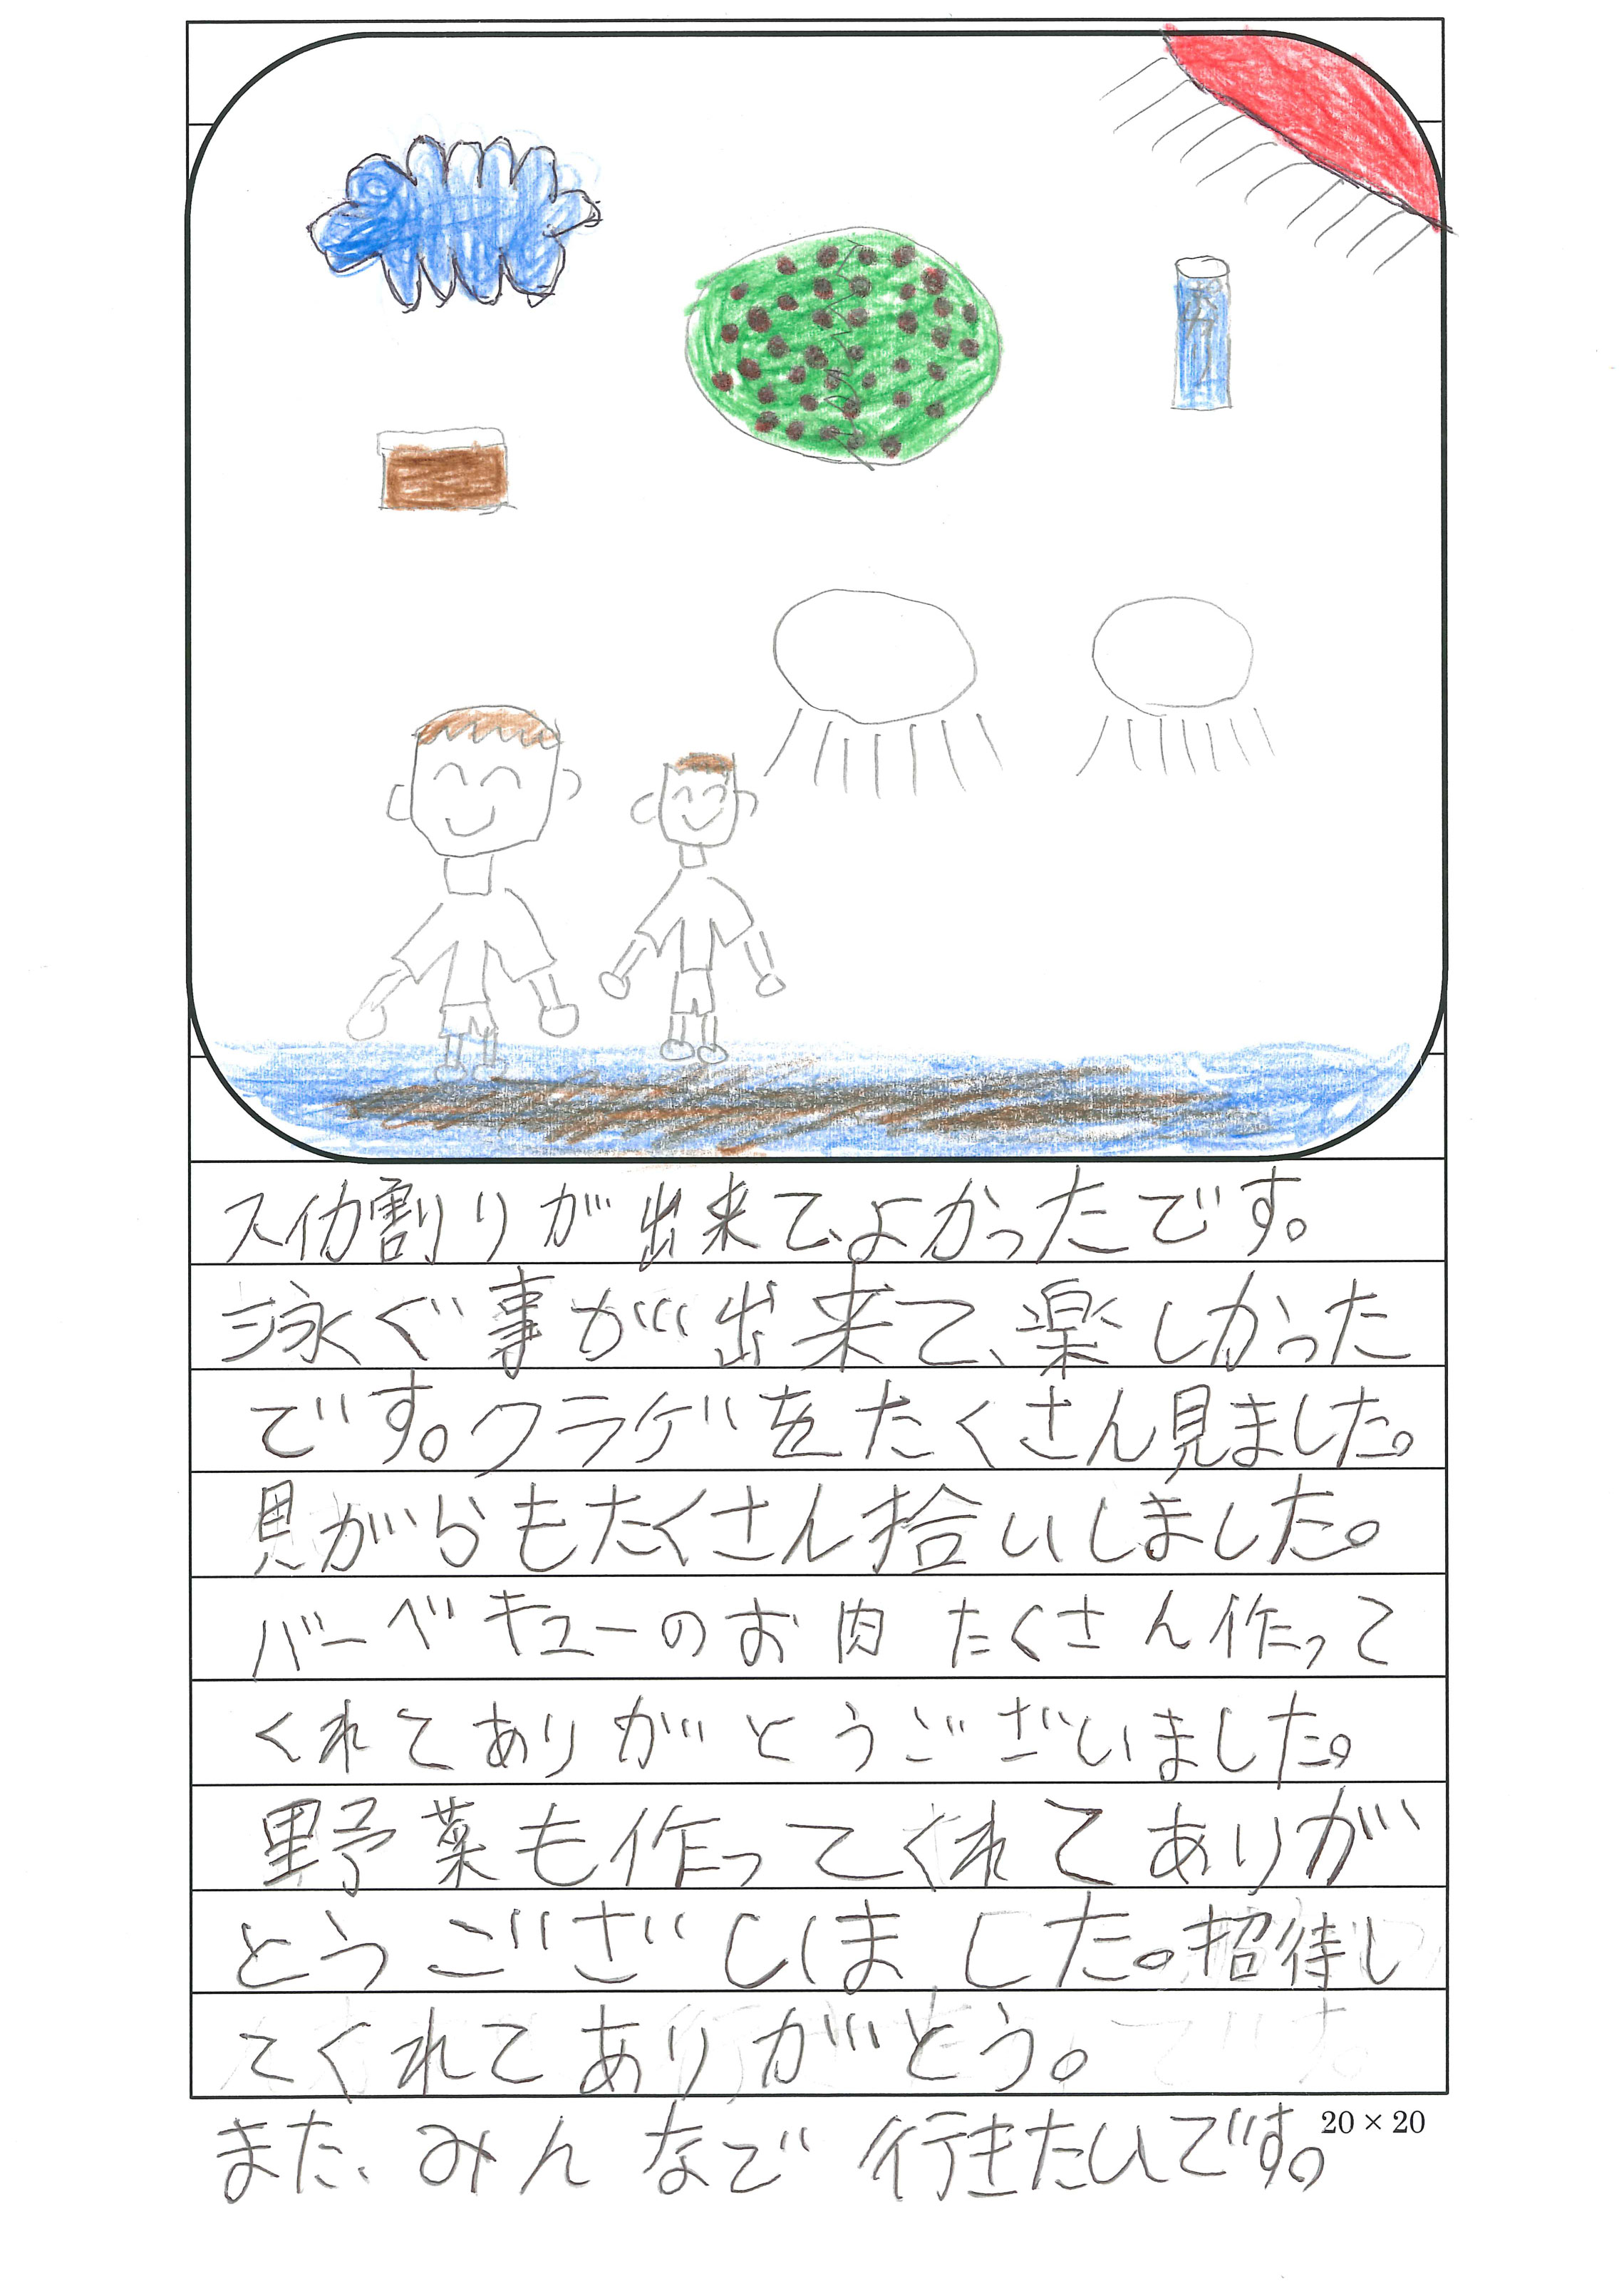 スイカ割りが出来て、よかったです。
泳ぐ事が出来て、楽しかった
です。クラゲをたくさん見ました。
貝がらもたくさん拾いしました。
バーベキューのお肉たくさん作って
くれてありがとうございました。
野菜も作ってくれてありが
とうございました。招待し
てくれてありがとう。
20×20
また、みんなで行きたいです。